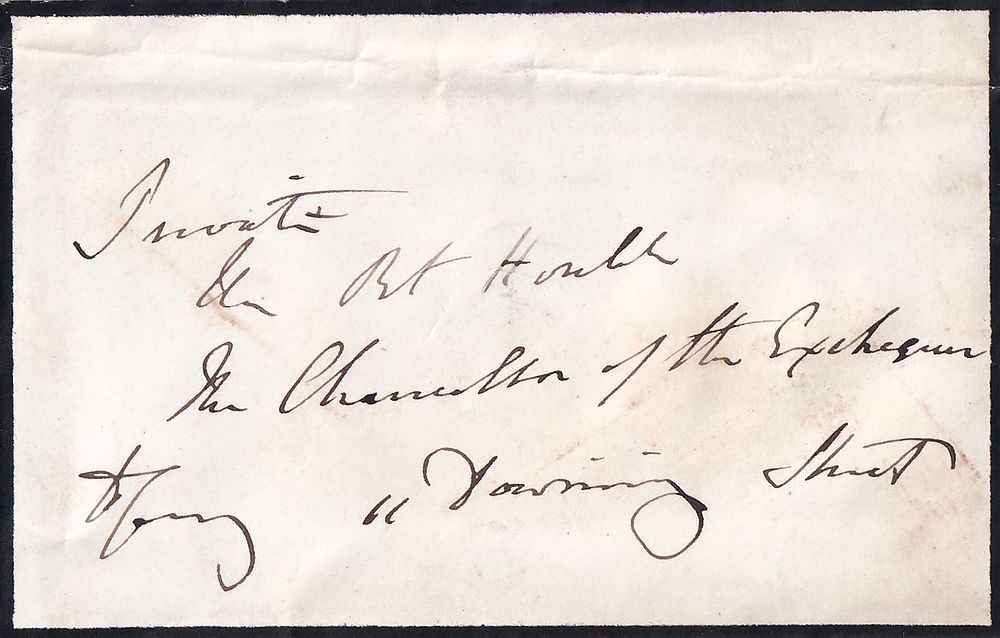 Private
The Rt Honble
The Chancellor of the Exchequer
11 Downing Street